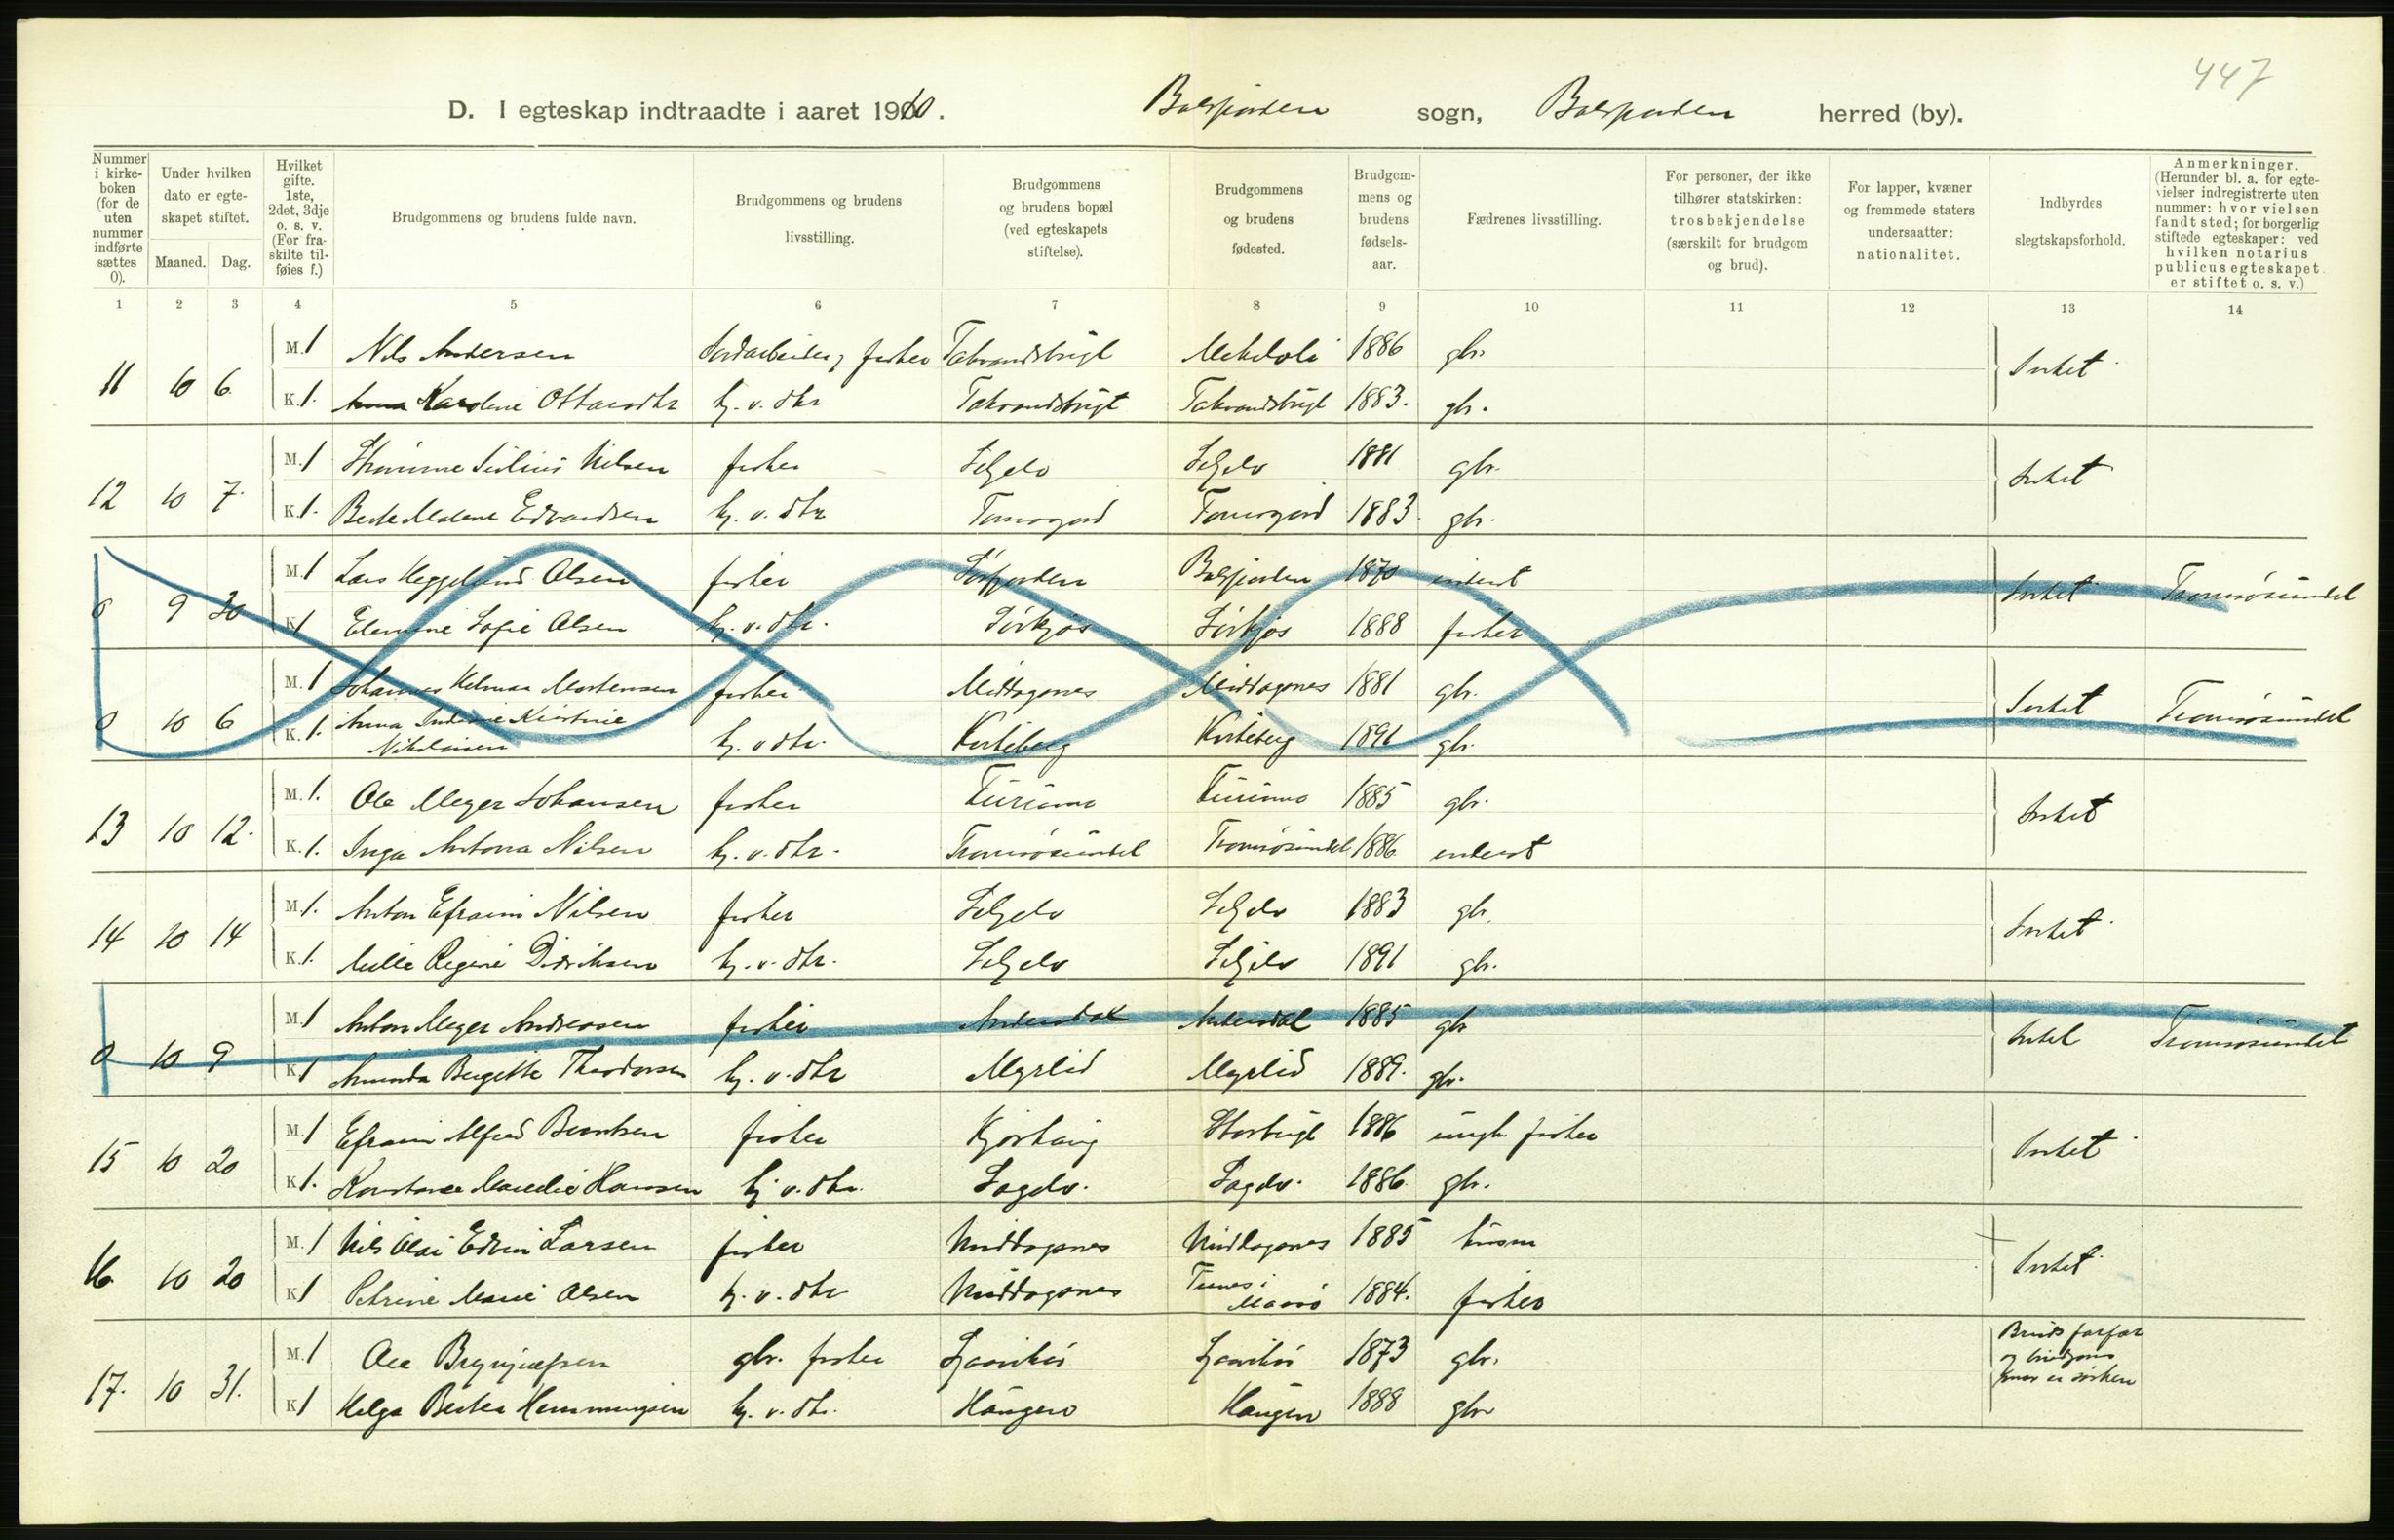 447
D. I egteskap indtraadte i aaret 1910. Balsfjorden sogn, Balsfjorden herred (by).
Nummer i kirke-boken (for de uten nummer indførte sættes 0).
Under hvilken dato er egte-skapet stiftet.
Maaned. Dag.
Hvilket gifte. 1ste, 2det, 3dje o. s. v. (For fra-skilte til-føies f.)
Brudgommens og brudens fulde navn.
Brudgommens og brudens livsstilling.
Brudgommens og brudens bopæl (ved egteskapets stiftelse).
Brudgommens og brudens fødested.
Brudgom-mens og brudens fødsels-aar.
Fædrenes livsstilling.
For personer, der ikke tilhører statskirken: trosbekjendelse (særskilt for brudgom og brud).
For lapper, kvæner og fremmede staters undersaatter: nationalitet.
Indbyrdes slegtskapsforhold.
Anmerkninger. (Herunder bl. a. for egte-vielser indregistrerte uten nummer: hvor vielsen fandt sted; for borgerlig stiftede egteskaper: ved hvilken notarius publicus egteskapet er stiftet o. s. v.)
1 2 3 4 5 6 7 8 9 10 11 12 13 14
M. 1 Nils Andersen Jordarbeider, fisker Takvandsbugt 1886 gbr.
11 10 6. Intet
K. 1. Anna Karoline Ottarsdtr hj. v. dtr Takvandsbugt Takvandsbugt 1883. gbr.
M. 1 Julius Nilsen fisker Seljelv Seljelv 1881 gbr.
12 10 7. Intet
K. 1. Edvardsen hj. v. dtr Tomasjord Tomasjord 1883. gbr.
M. 1 Lars Heggelund Olsen fisker Sørfjorden Balsfjorden 1870 inderst
0 9 30 Intet Tromsøsundet
K. 1 Elenine Sofie Olsen hj. v. dtr. Sørkjos Sørkjos 1888 fisker
M. 1 Johannes Hilmar Mortensen fisker Middagsnes Middagsnes 1881 gbr.
0 10 6 Intet Tromsøsundet
K. 1. Anna Kristine
Nikolaisen hj. v dtr. 1891 gbr.
M. 1. Ole Meyer Johansen fisker 1885 gbr.
13 10 12. Intet
K. 1. Inga Antona Nilsen hj. v. dtr. Tromsøsundet Tromsøsundet 1886. inderst
M. 1. Anton Efraim Nilsen fisker Seljelv Seljelv 1883 gbr.
14 10 14 Intet
K. 1. Regine Didriksen hj. v. dtr. Seljelv Seljelv 1891 gbr.
M. 1 Anton Meyer Andreasen fisker Andersdal Andersdal 1885 gbr
0 10 9 Intet Tromsøsundet
K. 1 Aminda Bergitte Theodorsen hj. v. dtr Myrlid Myrlid 1889. gbr.
M. 1 Efraim Alfred Berntsen fisker Storbugt 1886 ungk. fisker
15 10 20 Intet
K. 1. Konstance Hansen hj v. dtr. Sagelv. Sagelv. 1886. gbr.
M. 1 Nils Olai Edvin Larsen fisker Middagsnes Middagsnes 1885 husm
16. 10 20 Intet
K. 1 Petrine Marie Olsen hj. v. dtr Middagsnes Tunes i
Maasø 1884. fisker
M. 1 Ole Brynjulfsen gbr. fisker 1873 gbr.
17. 10 31. Bruds farfar
og brudgoms
er søsken
K. 1 Helga Hemmingsen hj. v. dtr. Haugen Haugen 1888 gbr